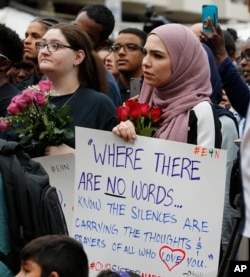 #E4N
"WHERE THERE
ARE NO WORDS...
KNOW THE SILENCES ARE
CARRYING THE THOUGHTS &
PRAYERS OF ALL WHO
LOVE YOU."
AP